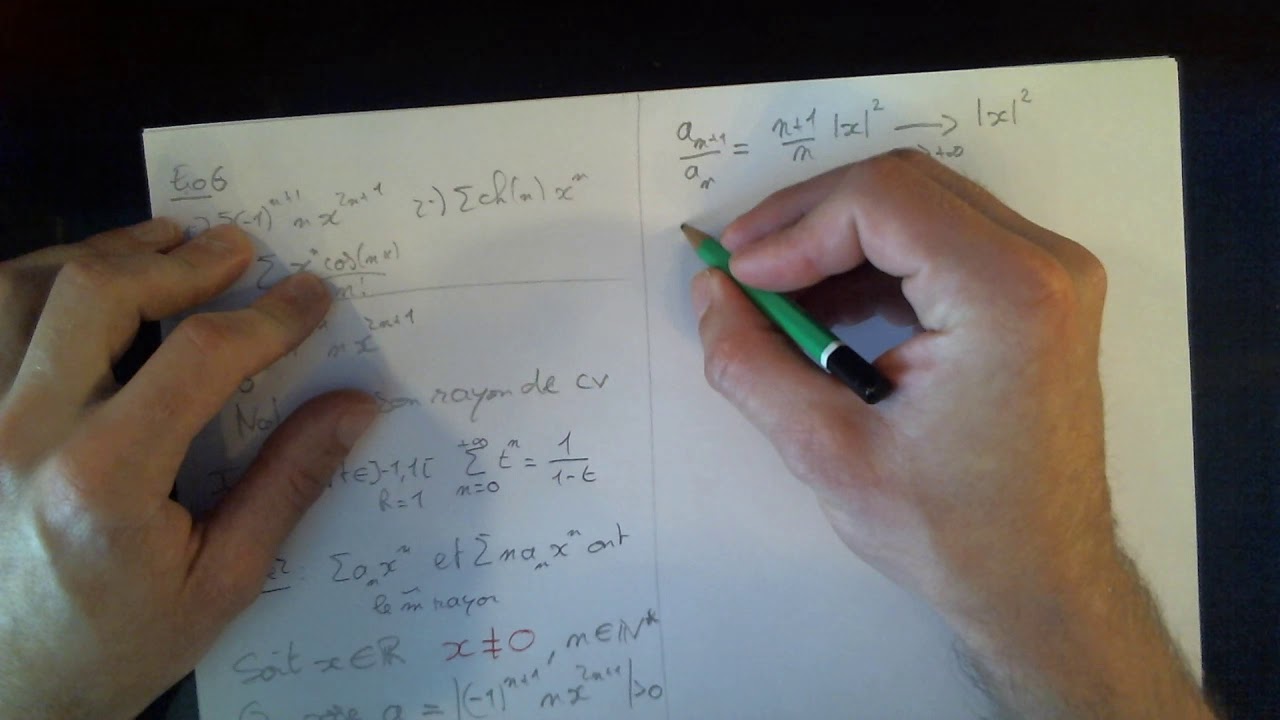 Exo 6
Σ(-1)^{n+1} n x^{2n+1} 2-) Σ ch(n) x^n
Σ x^n cos(nx) / n!
n x^{2n+1}
son rayon de cv
t∈]-1,1[ Σ_{n=0}^{+∞} t^n = 1/(1-t)
R=1
Σ a_n x^n et Σ n a_n x^n ont
le m̃ rayon
Soit x∈ℝ x≠0, n∈ℕ*
a = |(-1)^{n+1} n x^{2n+1}| >0
a_{n+1}/a_n = (n+1)/n |x|^2 → |x|^2
+∞